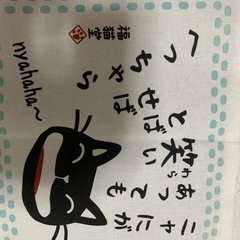 ニャにが
あっても
笑い
わら
とばせば
へっちゃら
福猫堂
nyahaha~